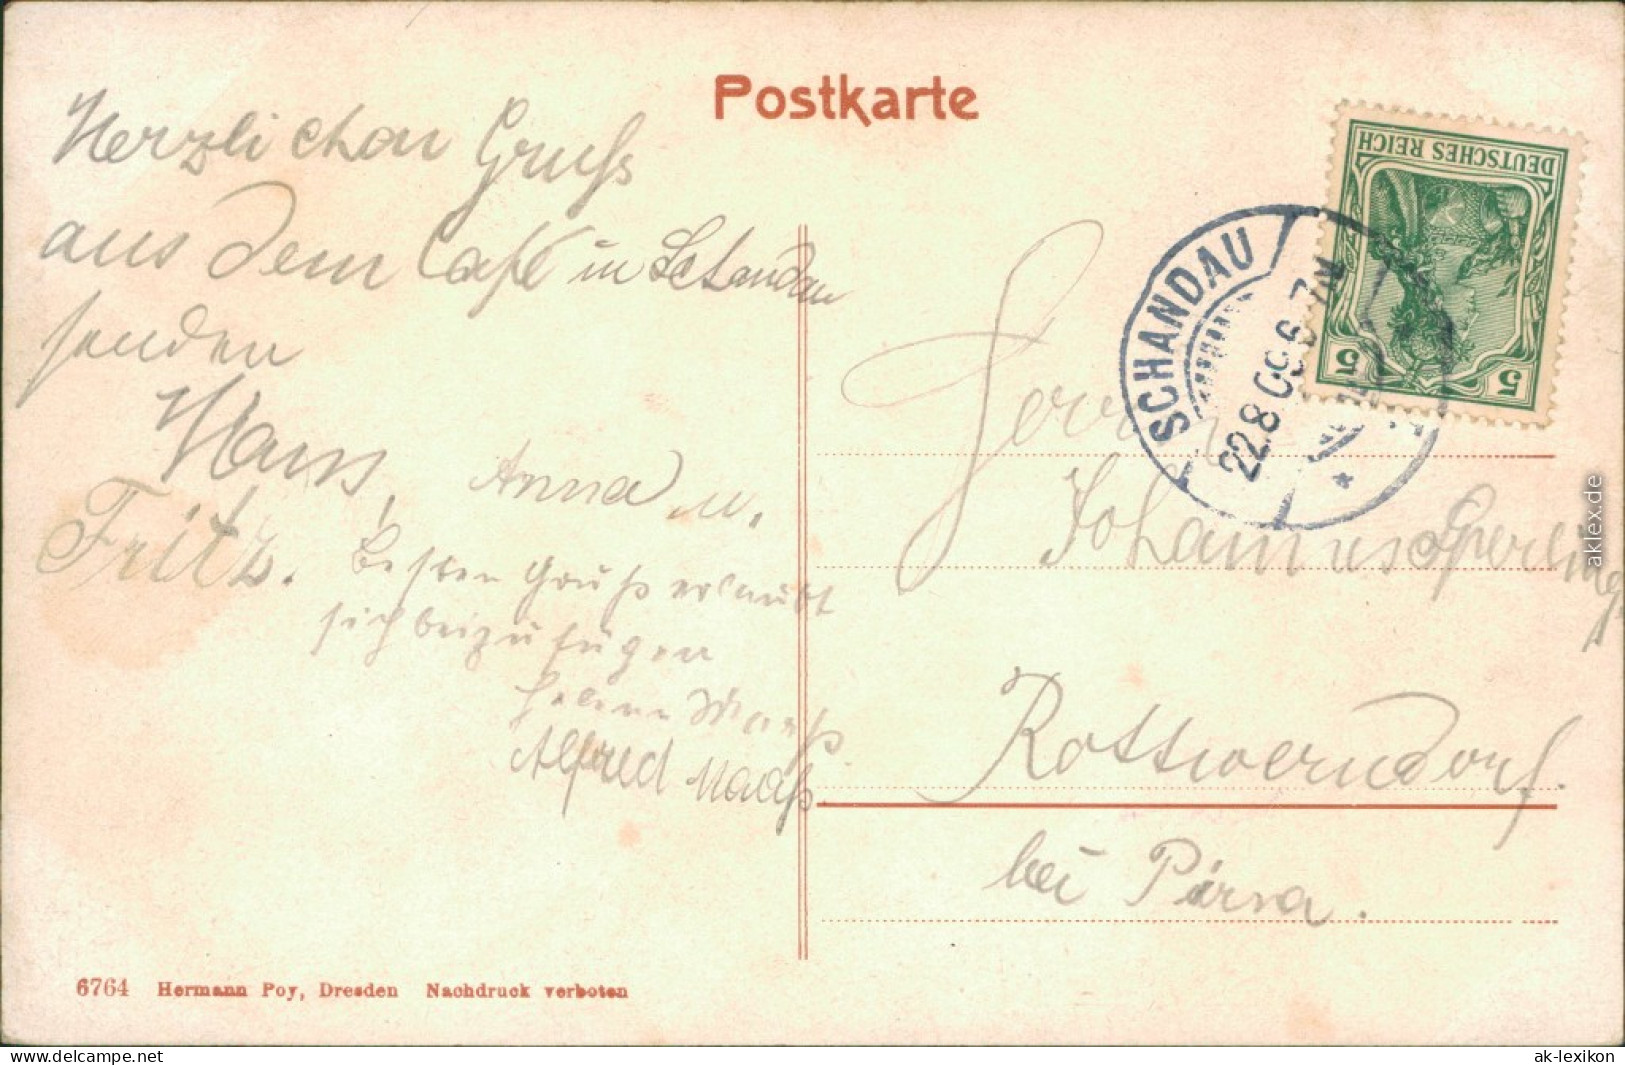 Postkarte
Herzlichen Gruß
aus dem Café in Schandau
senden
Hans, Anna u.
Fritz.
besten Gruß erlaubt
sich beizufügen
Helene Maaß
Alfred Maaß
6764 Hermann Poy, Dresden Nachdruck verboten
DEUTSCHES REICH
5 5
SCHANDAU
22.8.09.6-7N
Herrn
Johannes Sperling
Rottwerndorf
bei Pirna.
aklex.de
www.delcampe.net
ak-lexikon